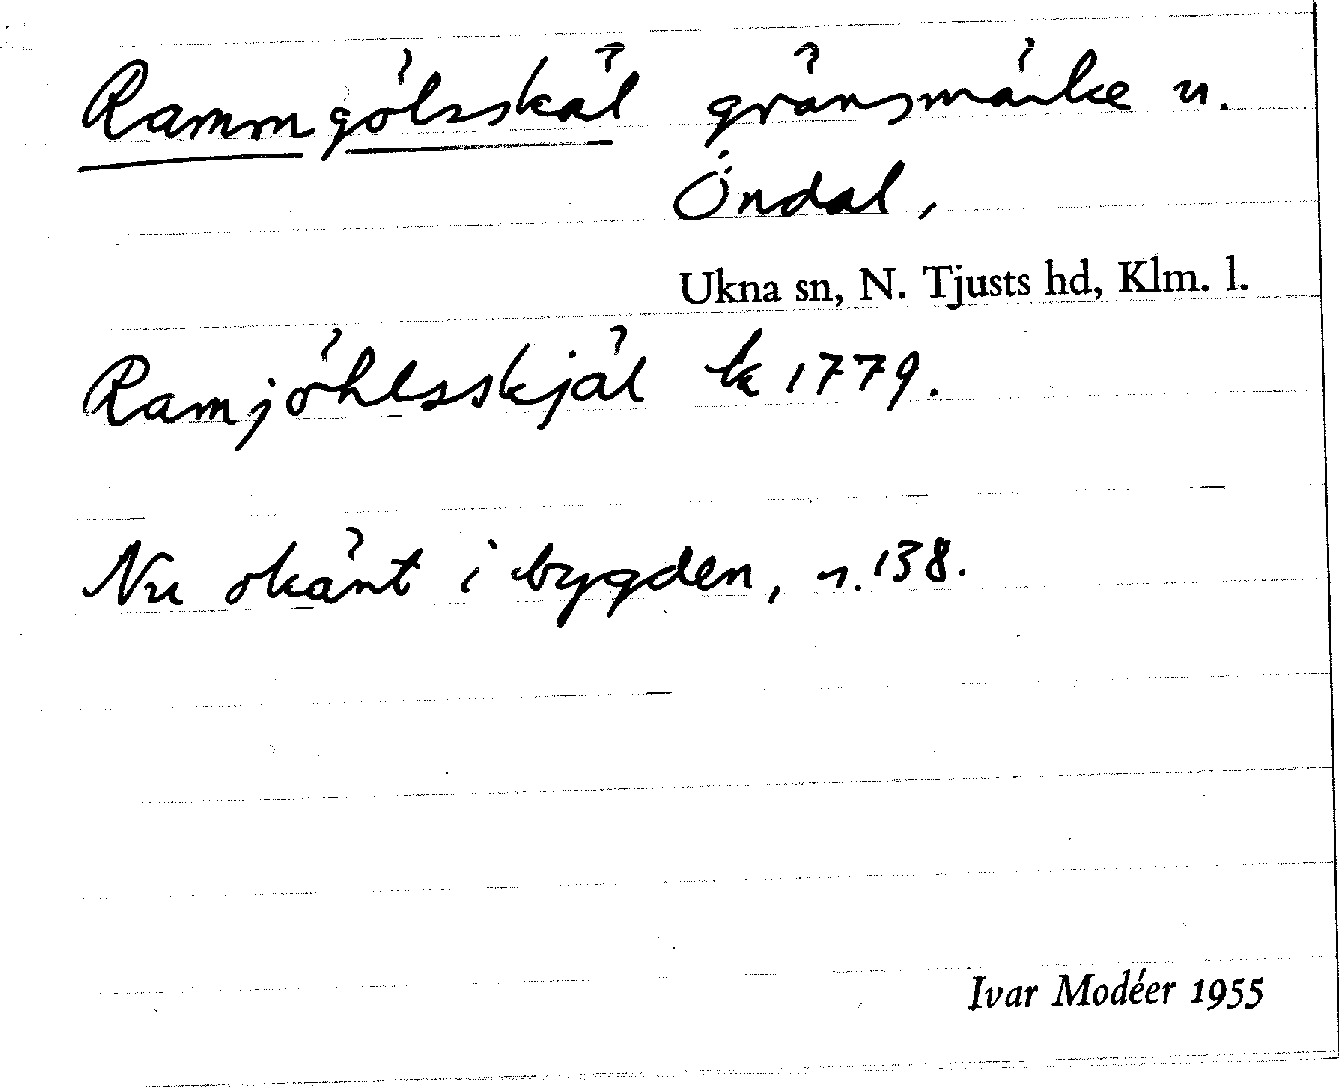 Rammgölsskäl gränsmärke u.
Öndal,
Ukna sn, N. Tjusts hd, Klm. l.
Ramjöhlsskjäl k 1779.
Nu okänt i bygden, n. 138.
Ivar Modéer 1955